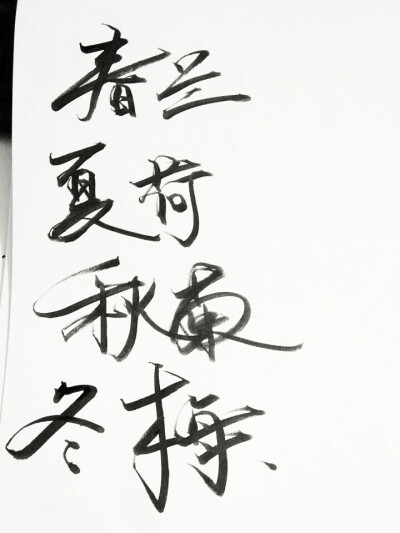 春兰
夏荷
秋菊
冬梅